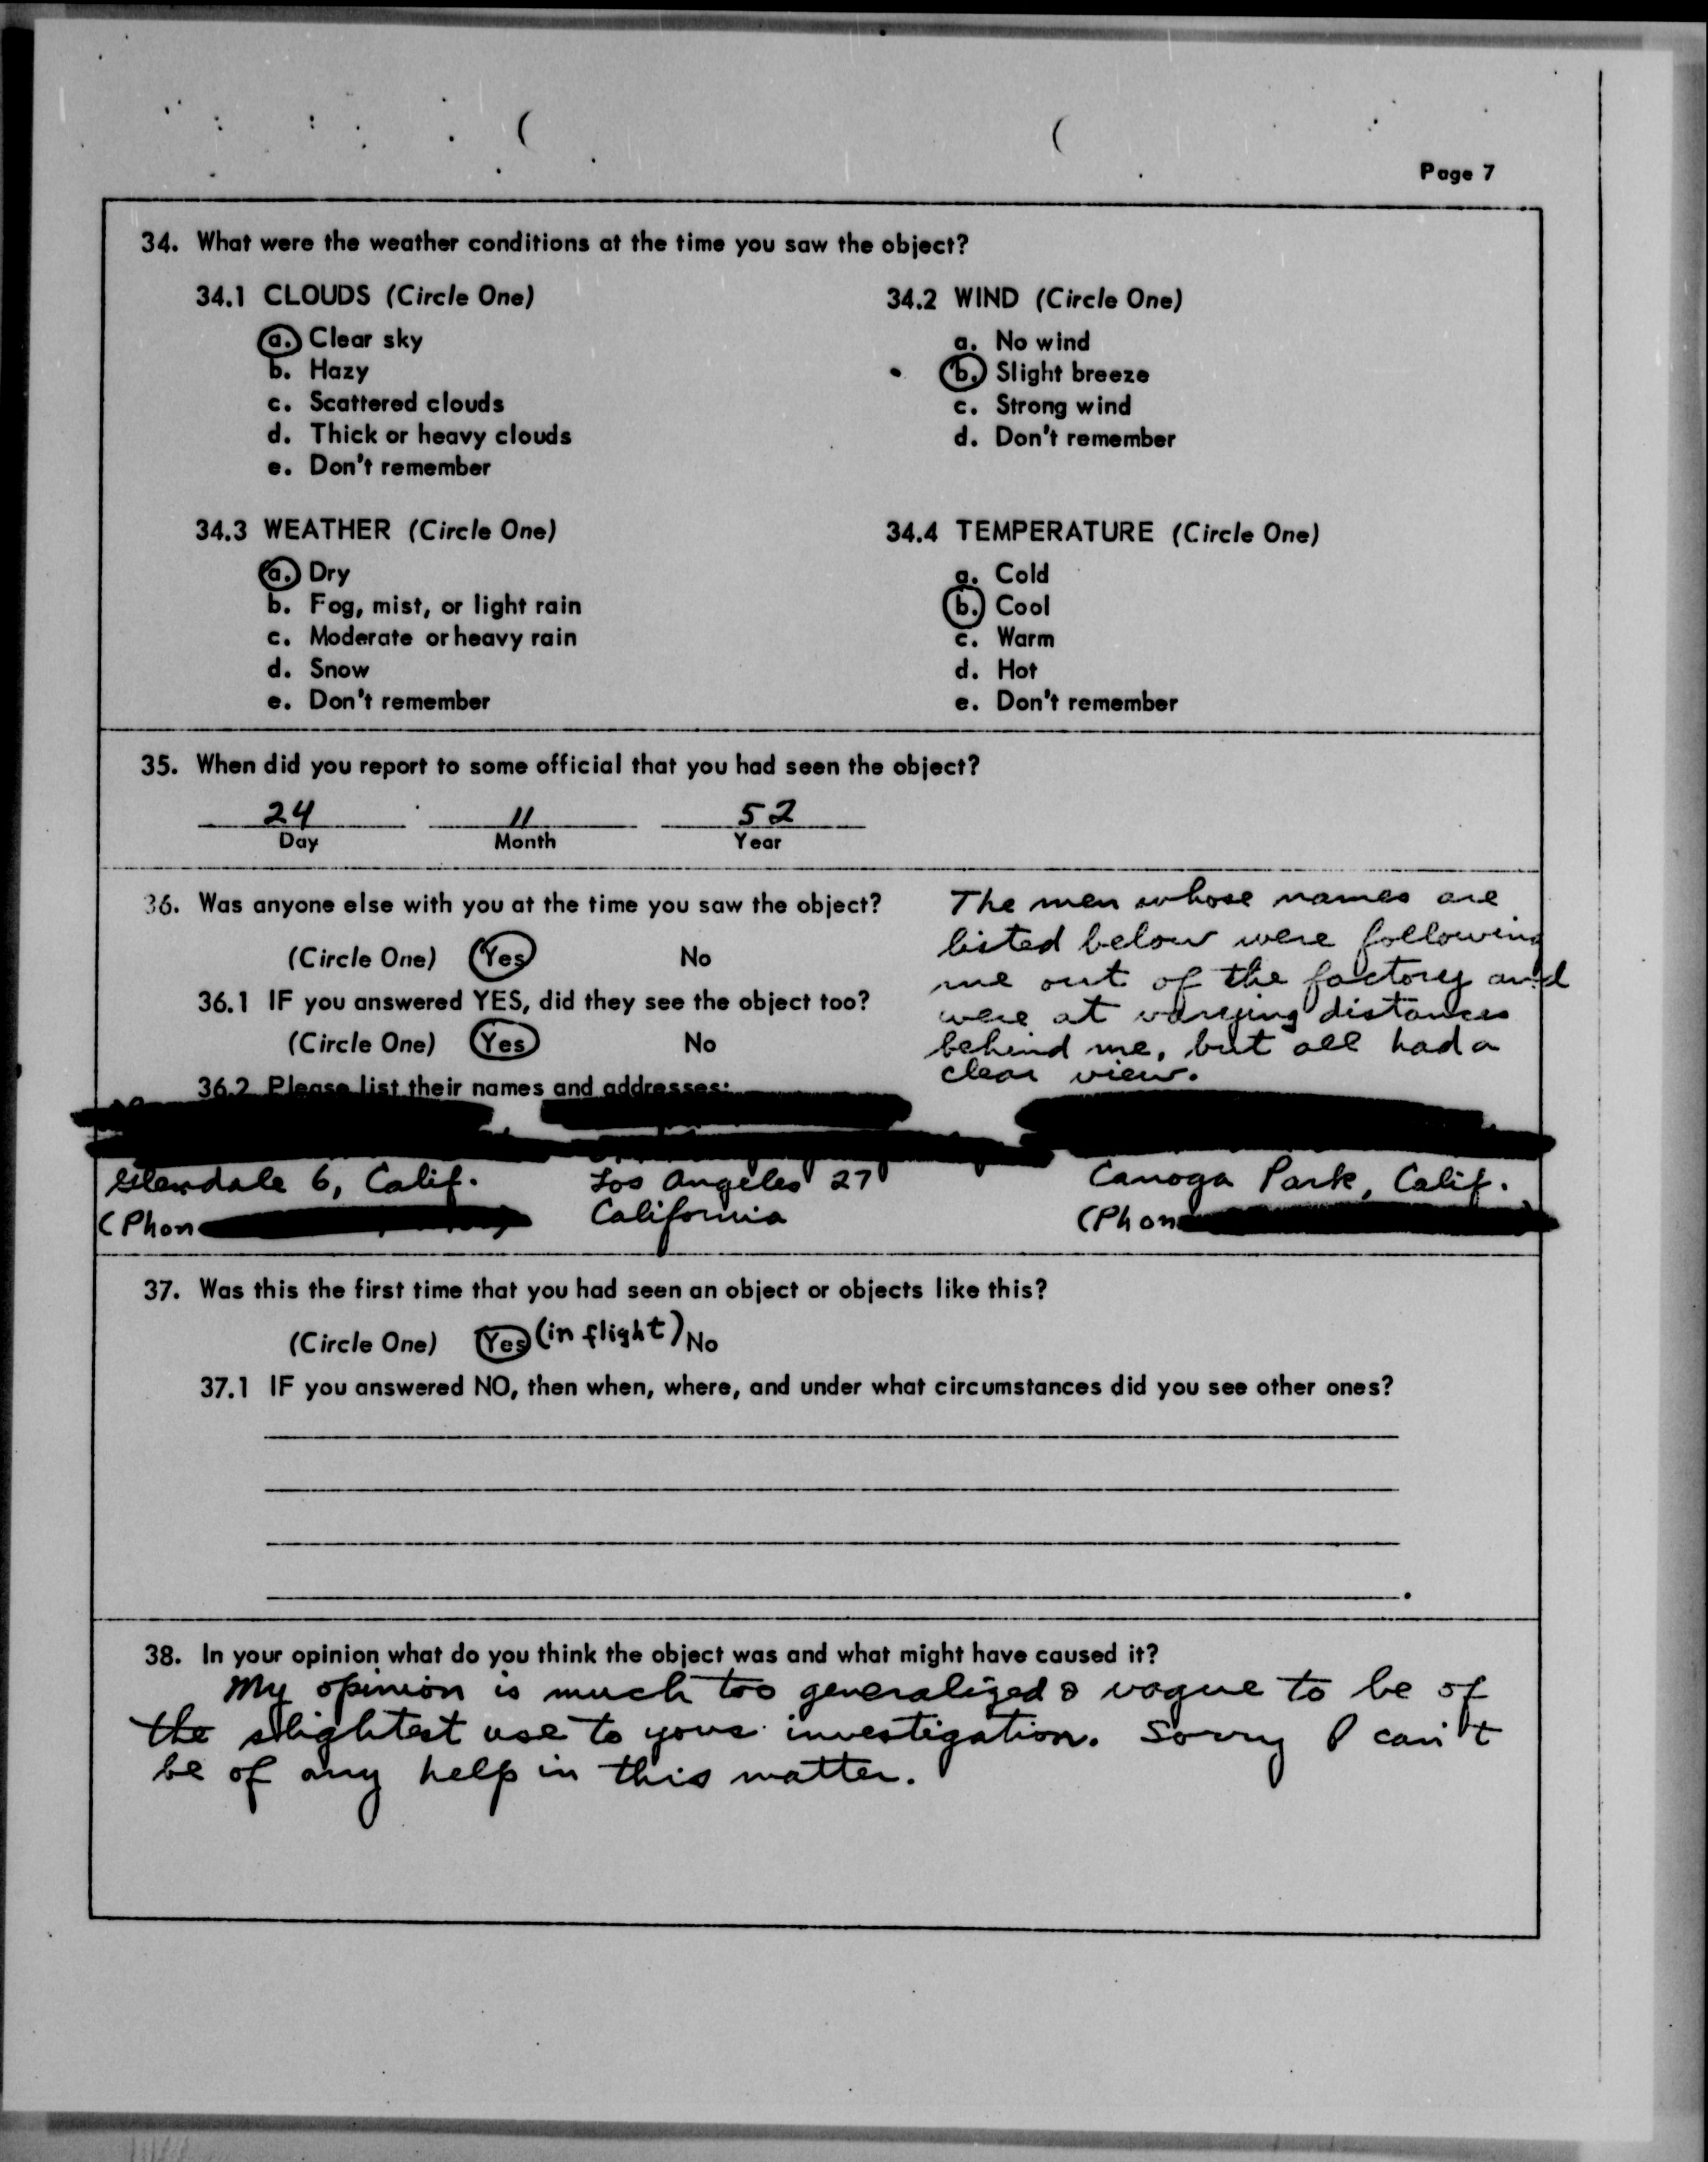 Page 7
34. What were the weather conditions at the time you saw the object?
34.1 CLOUDS (Circle One)
a. Clear sky
b. Hazy
c. Scattered clouds
d. Thick or heavy clouds
e. Don't remember
34.2 WIND (Circle One)
a. No wind
b. Slight breeze
c. Strong wind
d. Don't remember
34.3 WEATHER (Circle One)
a. Dry
b. Fog, mist, or light rain
c. Moderate or heavy rain
d. Snow
e. Don't remember
34.4 TEMPERATURE (Circle One)
a. Cold
b. Cool
c. Warm
d. Hot
e. Don't remember
35. When did you report to some official that you had seen the object?
24 11 52
Day Month Year
36. Was anyone else with you at the time you saw the object?
(Circle One) Yes No
36.1 IF you answered YES, did they see the object too?
(Circle One) Yes No
36.2 Please list their names and addresses:
The men whose names are
listed below were following
me out of the factory and
were at varying distances
behind me, but all had a
clear view.
Glendale 6, Calif.
(Phon
Los Angeles 27
California
Canoga Park, Calif.
(Phon
37. Was this the first time that you had seen an object or objects like this?
(Circle One) Yes (in flight) No
37.1 IF you answered NO, then when, where, and under what circumstances did you see other ones?
38. In your opinion what do you think the object was and what might have caused it?
My opinion is much too generalized & vague to be of
the slightest use to your investigation. Sorry I can't
be of any help in this matter.